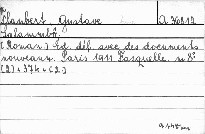 Flaubert, Gustave A 46812
Salammbô.
(Roman.) Éd. déf. avec des documents
nouveaux. Paris 1911. Fasquelle. n 8°
(2) + 374 + (2)